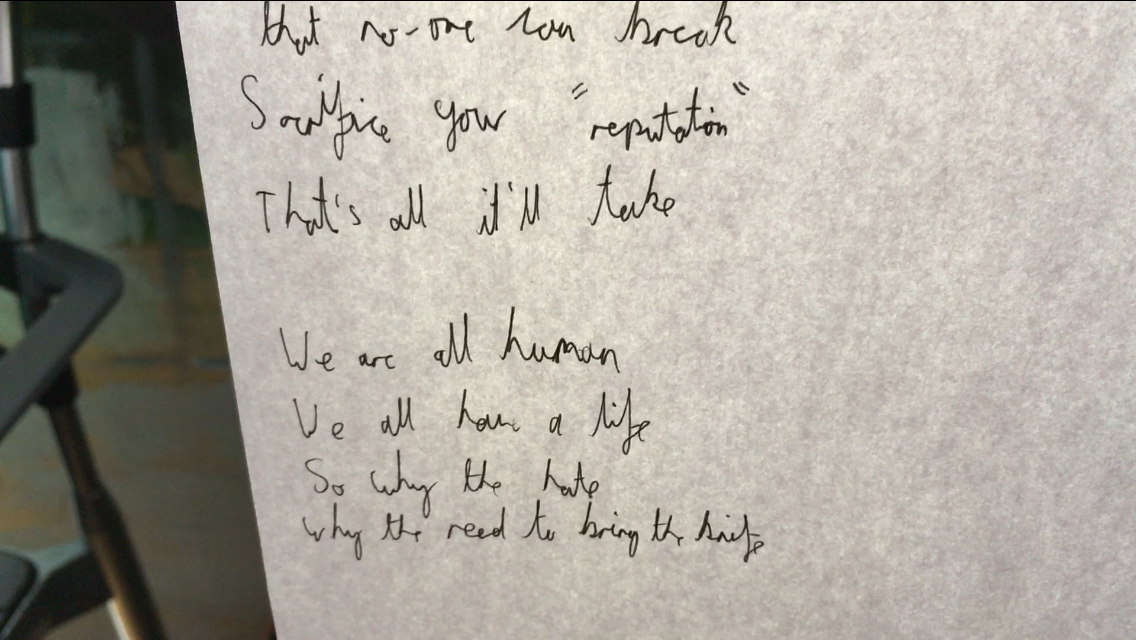 that no-one can break
Sacrifice your "reputation"
That's all it'll take
We are all human
We all have a life
So why the hate
why the need to bring the knife